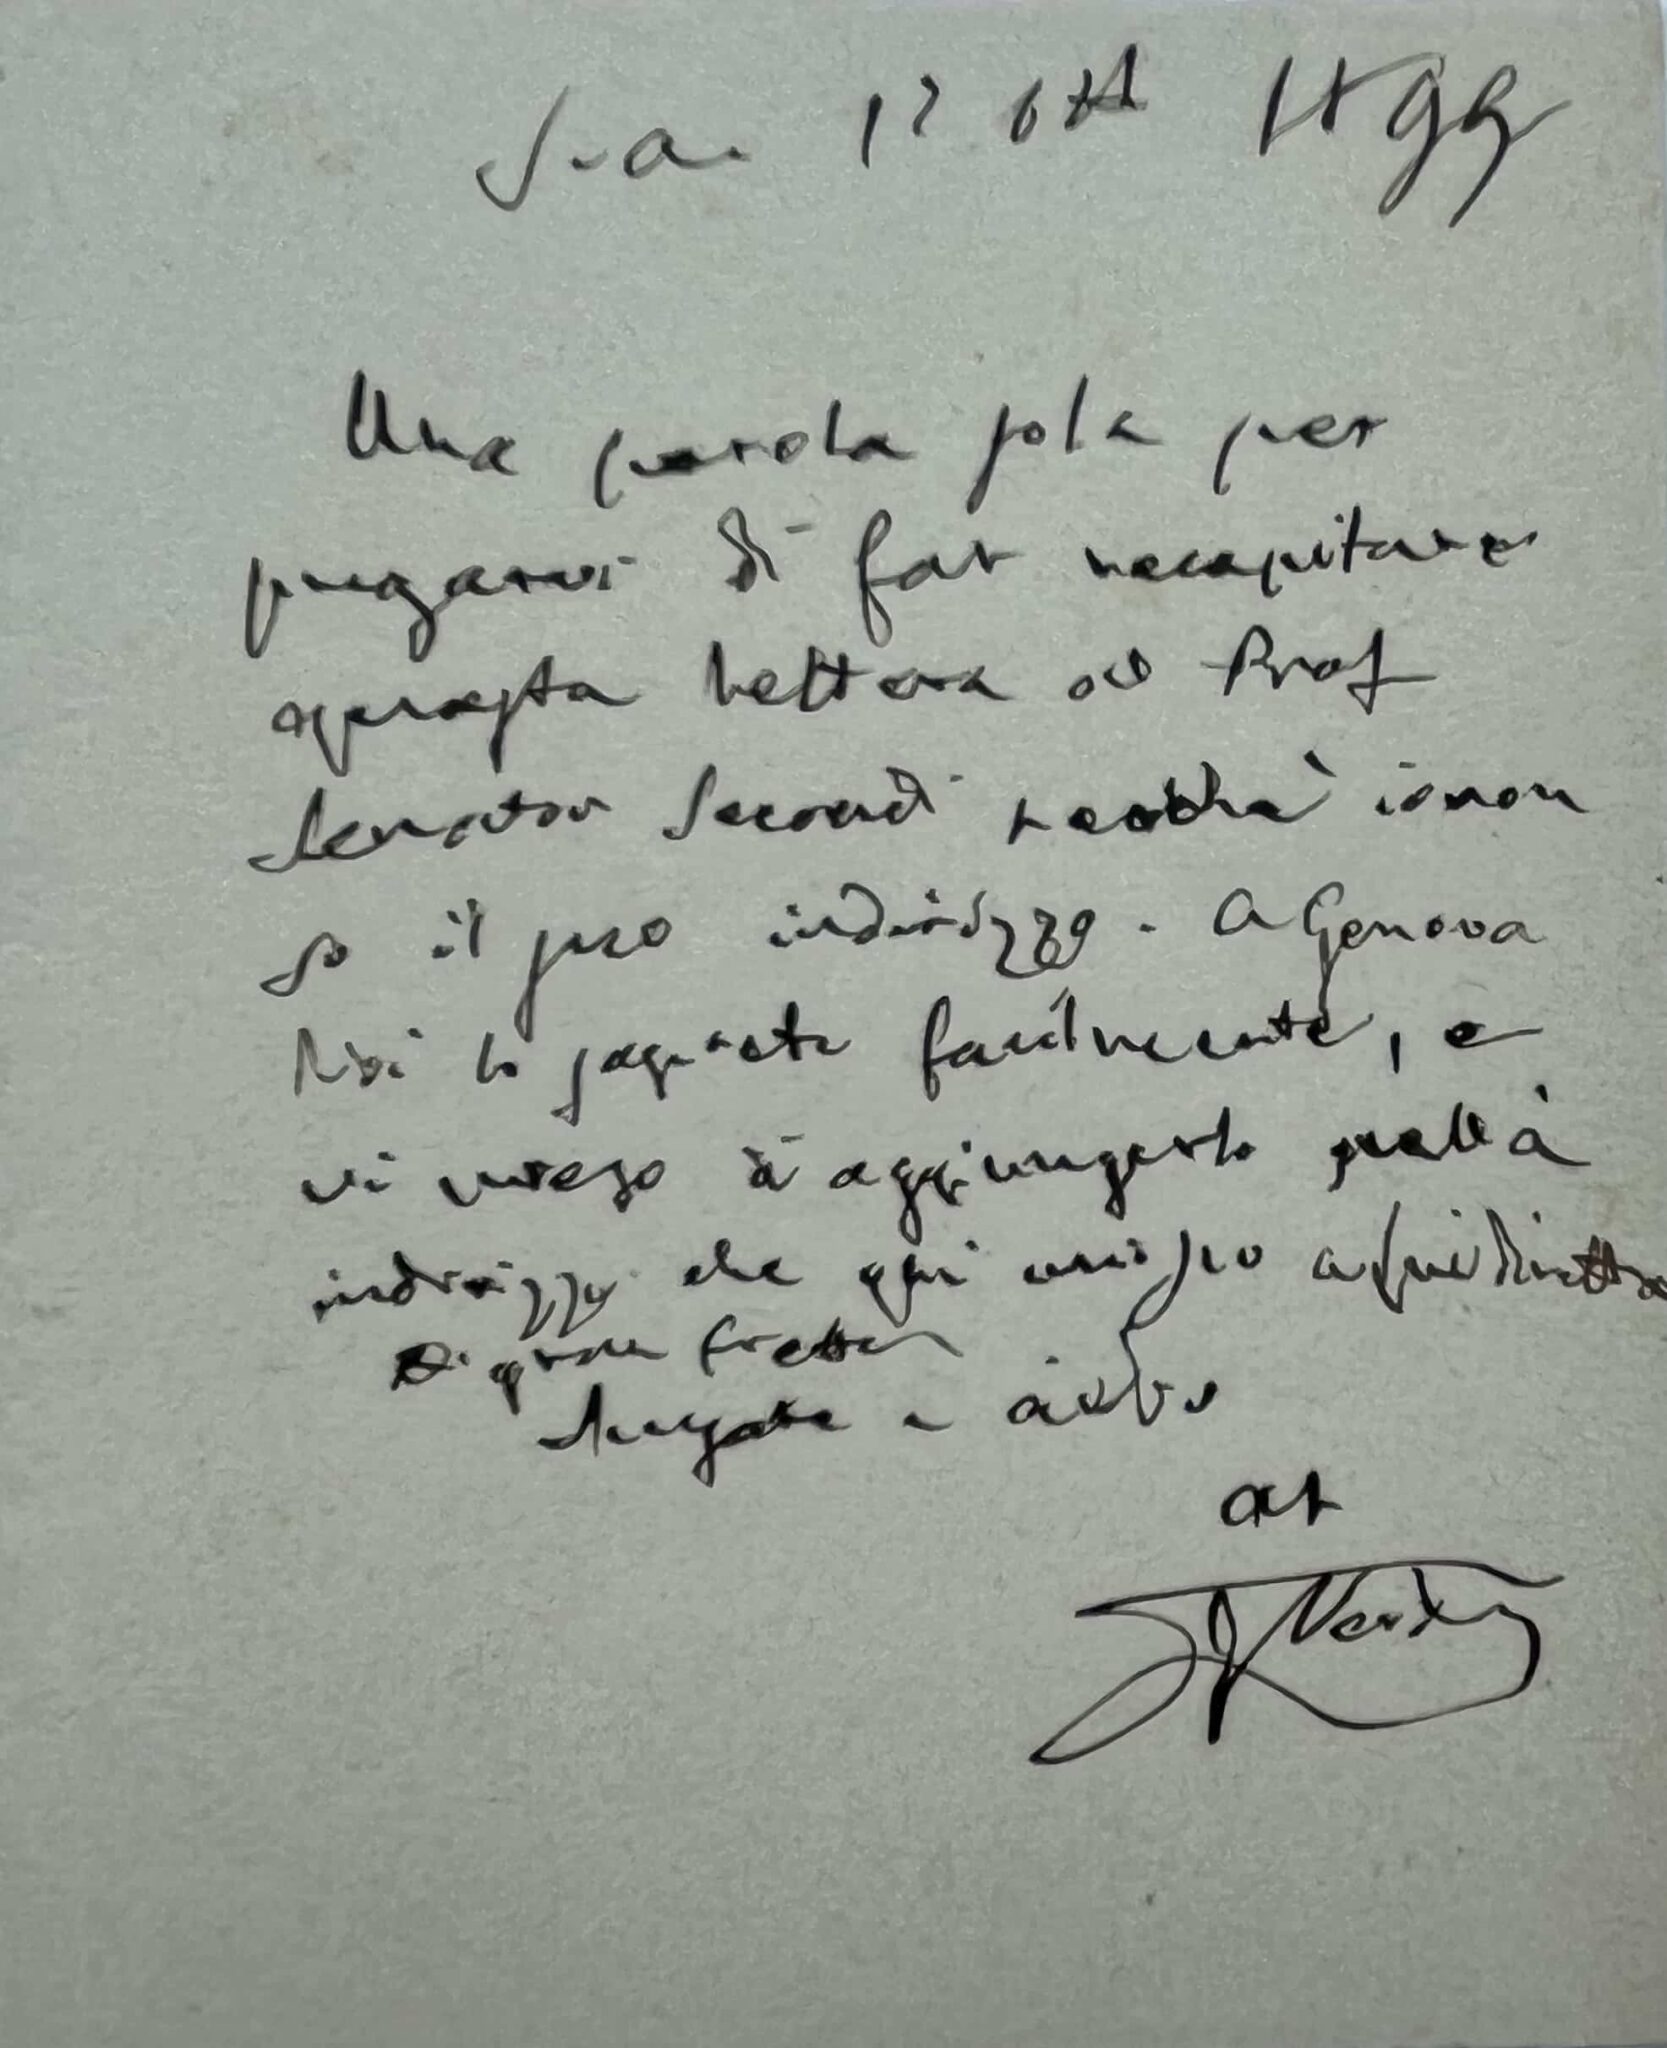 S. A. 12 Ott 1899
Una parola sola per
pregarvi di far recapitare
questa lettera al Prof
Senator Secondi perchè io non
so il suo indirizzo. A Genova
Voi lo saprete facilmente, e
vi prego d'aggiungerlo nella
indirizzo che qui unisco
Di gran fretta
Scusate e addio
af
G Verdi